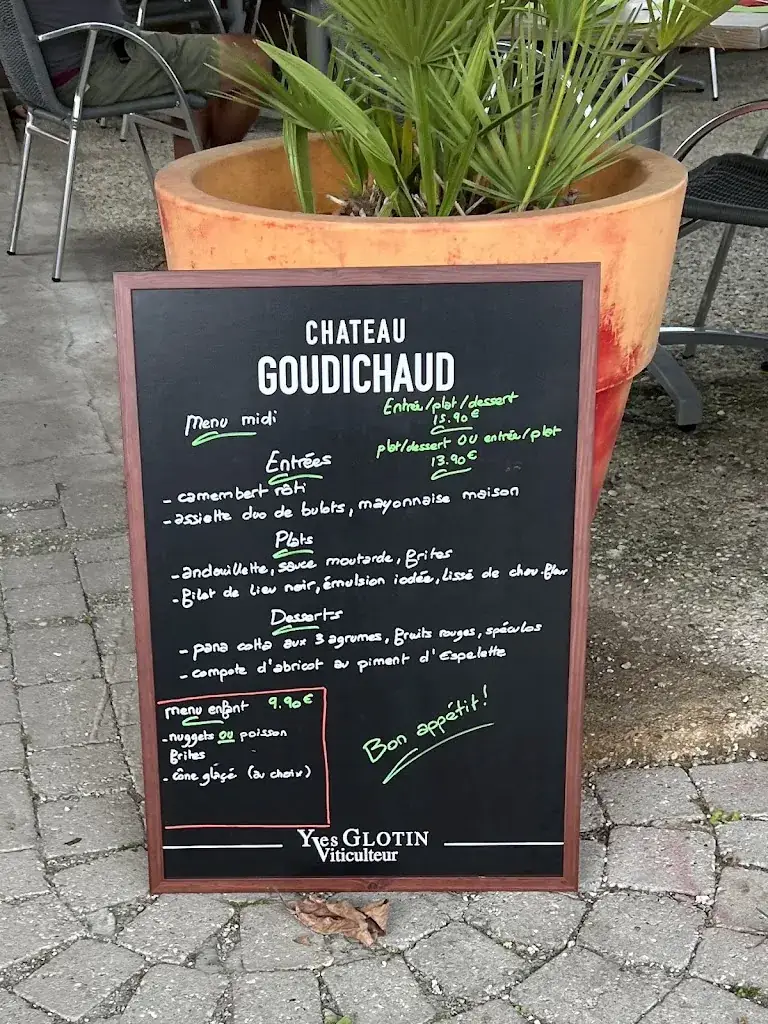 CHATEAU
GOUDICHAUD
Menu midi
Entrée/plat/dessert
15.90€
plat/dessert OU entrée/plat
13.90€
Entrées
- camembert rôti
- assiette duo de bulots, mayonnaise maison
Plats
- andouillette, sauce moutarde, frites
- filet de lieu noir, émulsion iodée, lissé de chou-fleur
Desserts
- pana cotta aux 3 agrumes, fruits rouges, spéculos
- compote d'abricot au piment d'Espelette
menu enfant 9.90€
- nuggets ou poisson
frites
- cône glaçé (au choix)
Bon appétit!
Yves GLOTIN
Viticulteur